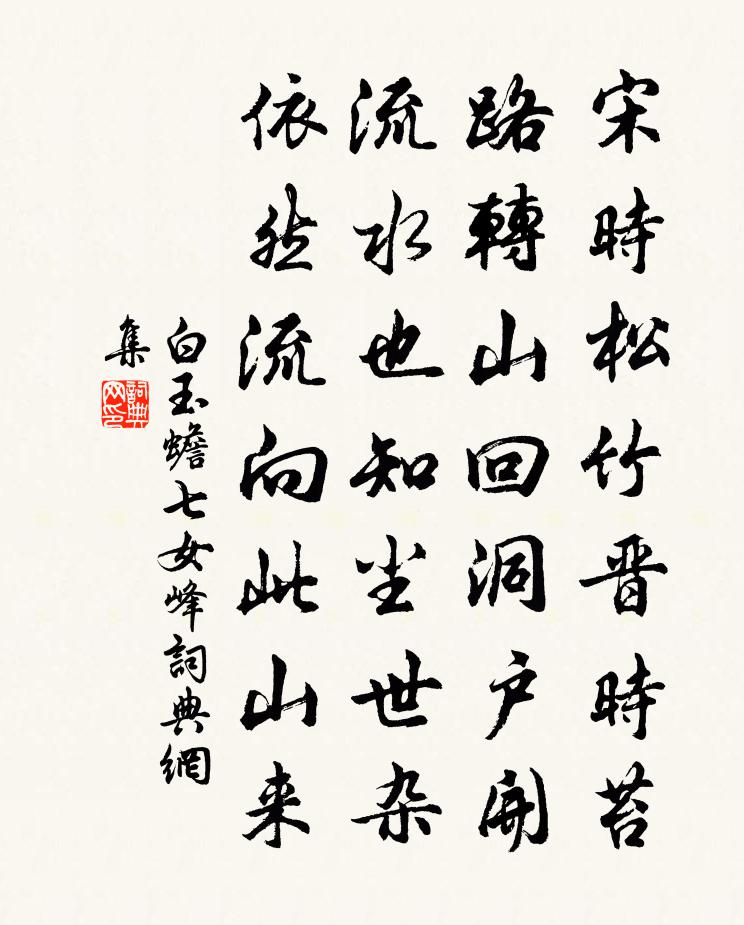 宋時松竹晋時苔
路轉山回洞户開
流水也知尘世杂
依然流向此山来
白玉蟾七女峰詞典網
集
詞典网印